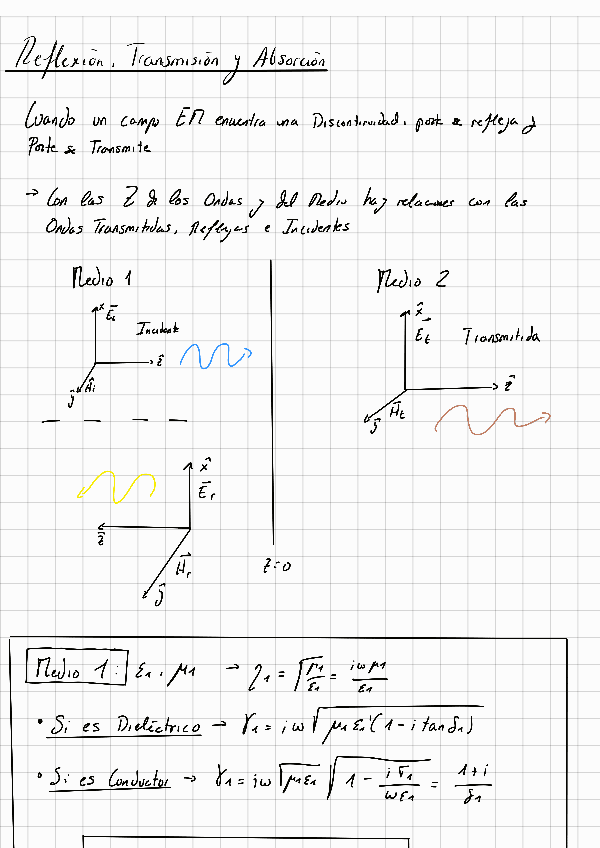 Reflexión, Transmisión y Absorción
Cuando un campo EM encuentra una Discontinuidad, parte se refleja y
Parte se Transmite
→ Con las Z de los Ondas y del Medio hay relaciones con las
Ondas Transmitidas, Reflejas e Incidentes
Medio 1
Medio 2
x̂ E⃗i
Incidente
ẑ
ŷ H⃗i
x̂
E⃗t
Transmitida
ẑ
ŷ H⃗t
x̂
E⃗r
ẑ
H⃗r
ŷ
z=0
Medio 1: ε1, μ1 → η1 = √(μ1/ε1) = iωμ1/ε1
• Si es Dieléctrico → γ1 = iω√(μ1ε1'(1 - i tan δ1))
• Si es Conductor → γ1 = iω√(μ1ε1) √(1 - iσ1/(ωε1)) = (1+i)/δ1